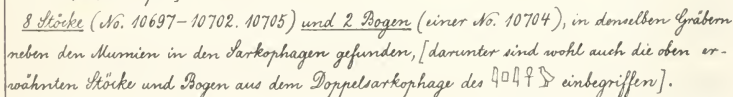 8 Stöcke (No. 10697–10702. 10705) und 2 Bogen (einer No. 10704), in denselben Gräbern
neben den Mumien in den Sarkophagen gefunden, [darunter sind wohl auch die oben er-
wähnten Stöcke und Bogen aus dem Doppelsarkophage des einbegriffen].